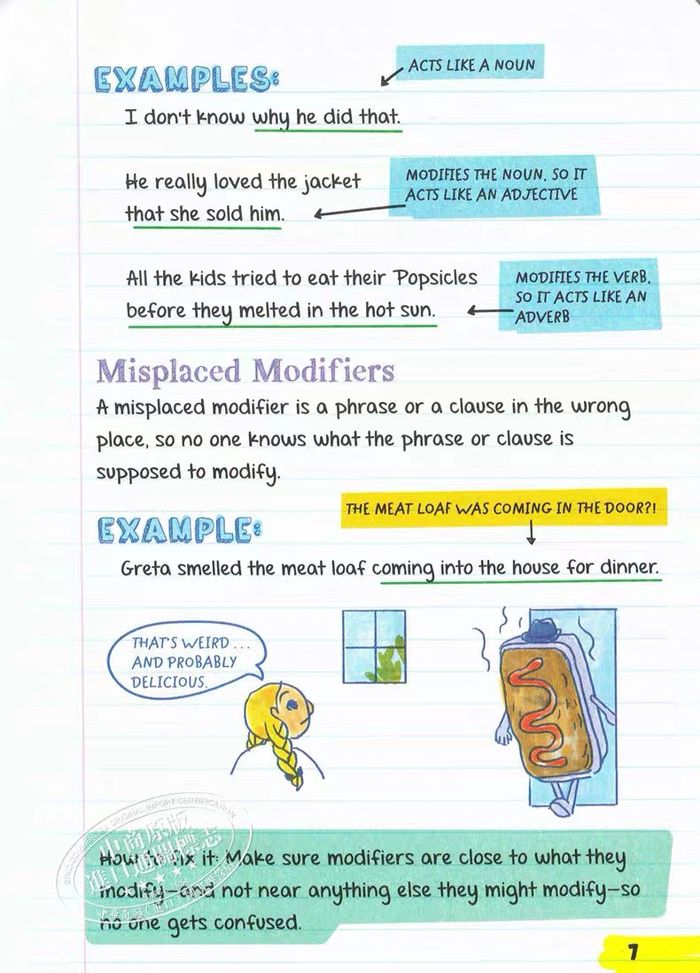 EXAMPLES:
ACTS LIKE A NOUN
I don't know why he did that.
He really loved the jacket
that she sold him.
MODIFIES THE NOUN, SO IT
ACTS LIKE AN ADJECTIVE
All the kids tried to eat their Popsicles
before they melted in the hot sun.
MODIFIES THE VERB,
SO IT ACTS LIKE AN
ADVERB
Misplaced Modifiers
A misplaced modifier is a phrase or a clause in the wrong
place, so no one knows what the phrase or clause is
supposed to modify.
THE MEAT LOAF WAS COMING IN THE DOOR?!
EXAMPLE:
Greta smelled the meat loaf coming into the house for dinner.
THAT'S WEIRD ...
AND PROBABLY
DELICIOUS.
How to fix it: Make sure modifiers are close to what they
modify—and not near anything else they might modify—so
no one gets confused.
中商原版
7